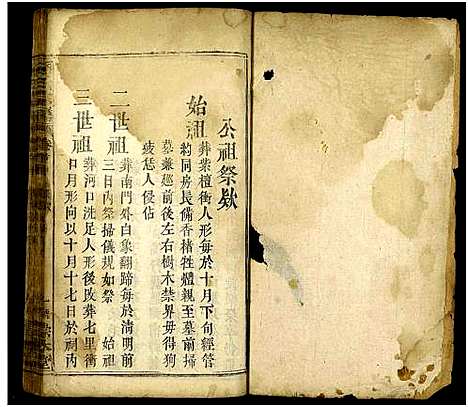 公祖祭欵
始祖 葬紫檀衝人形每於十月下旬經管
約同房長備香楮牲體親至墓前掃
墓兼廵前後左右樹木禁界毋得狥
疲恁人侵佔
二世祖 葬南門外白象翻蹄每於清明前
三日内祭掃儀規如祭 始祖
三世祖 葬河口洗足人形後改葬七里衝
口月形向以十月十七日於祠内